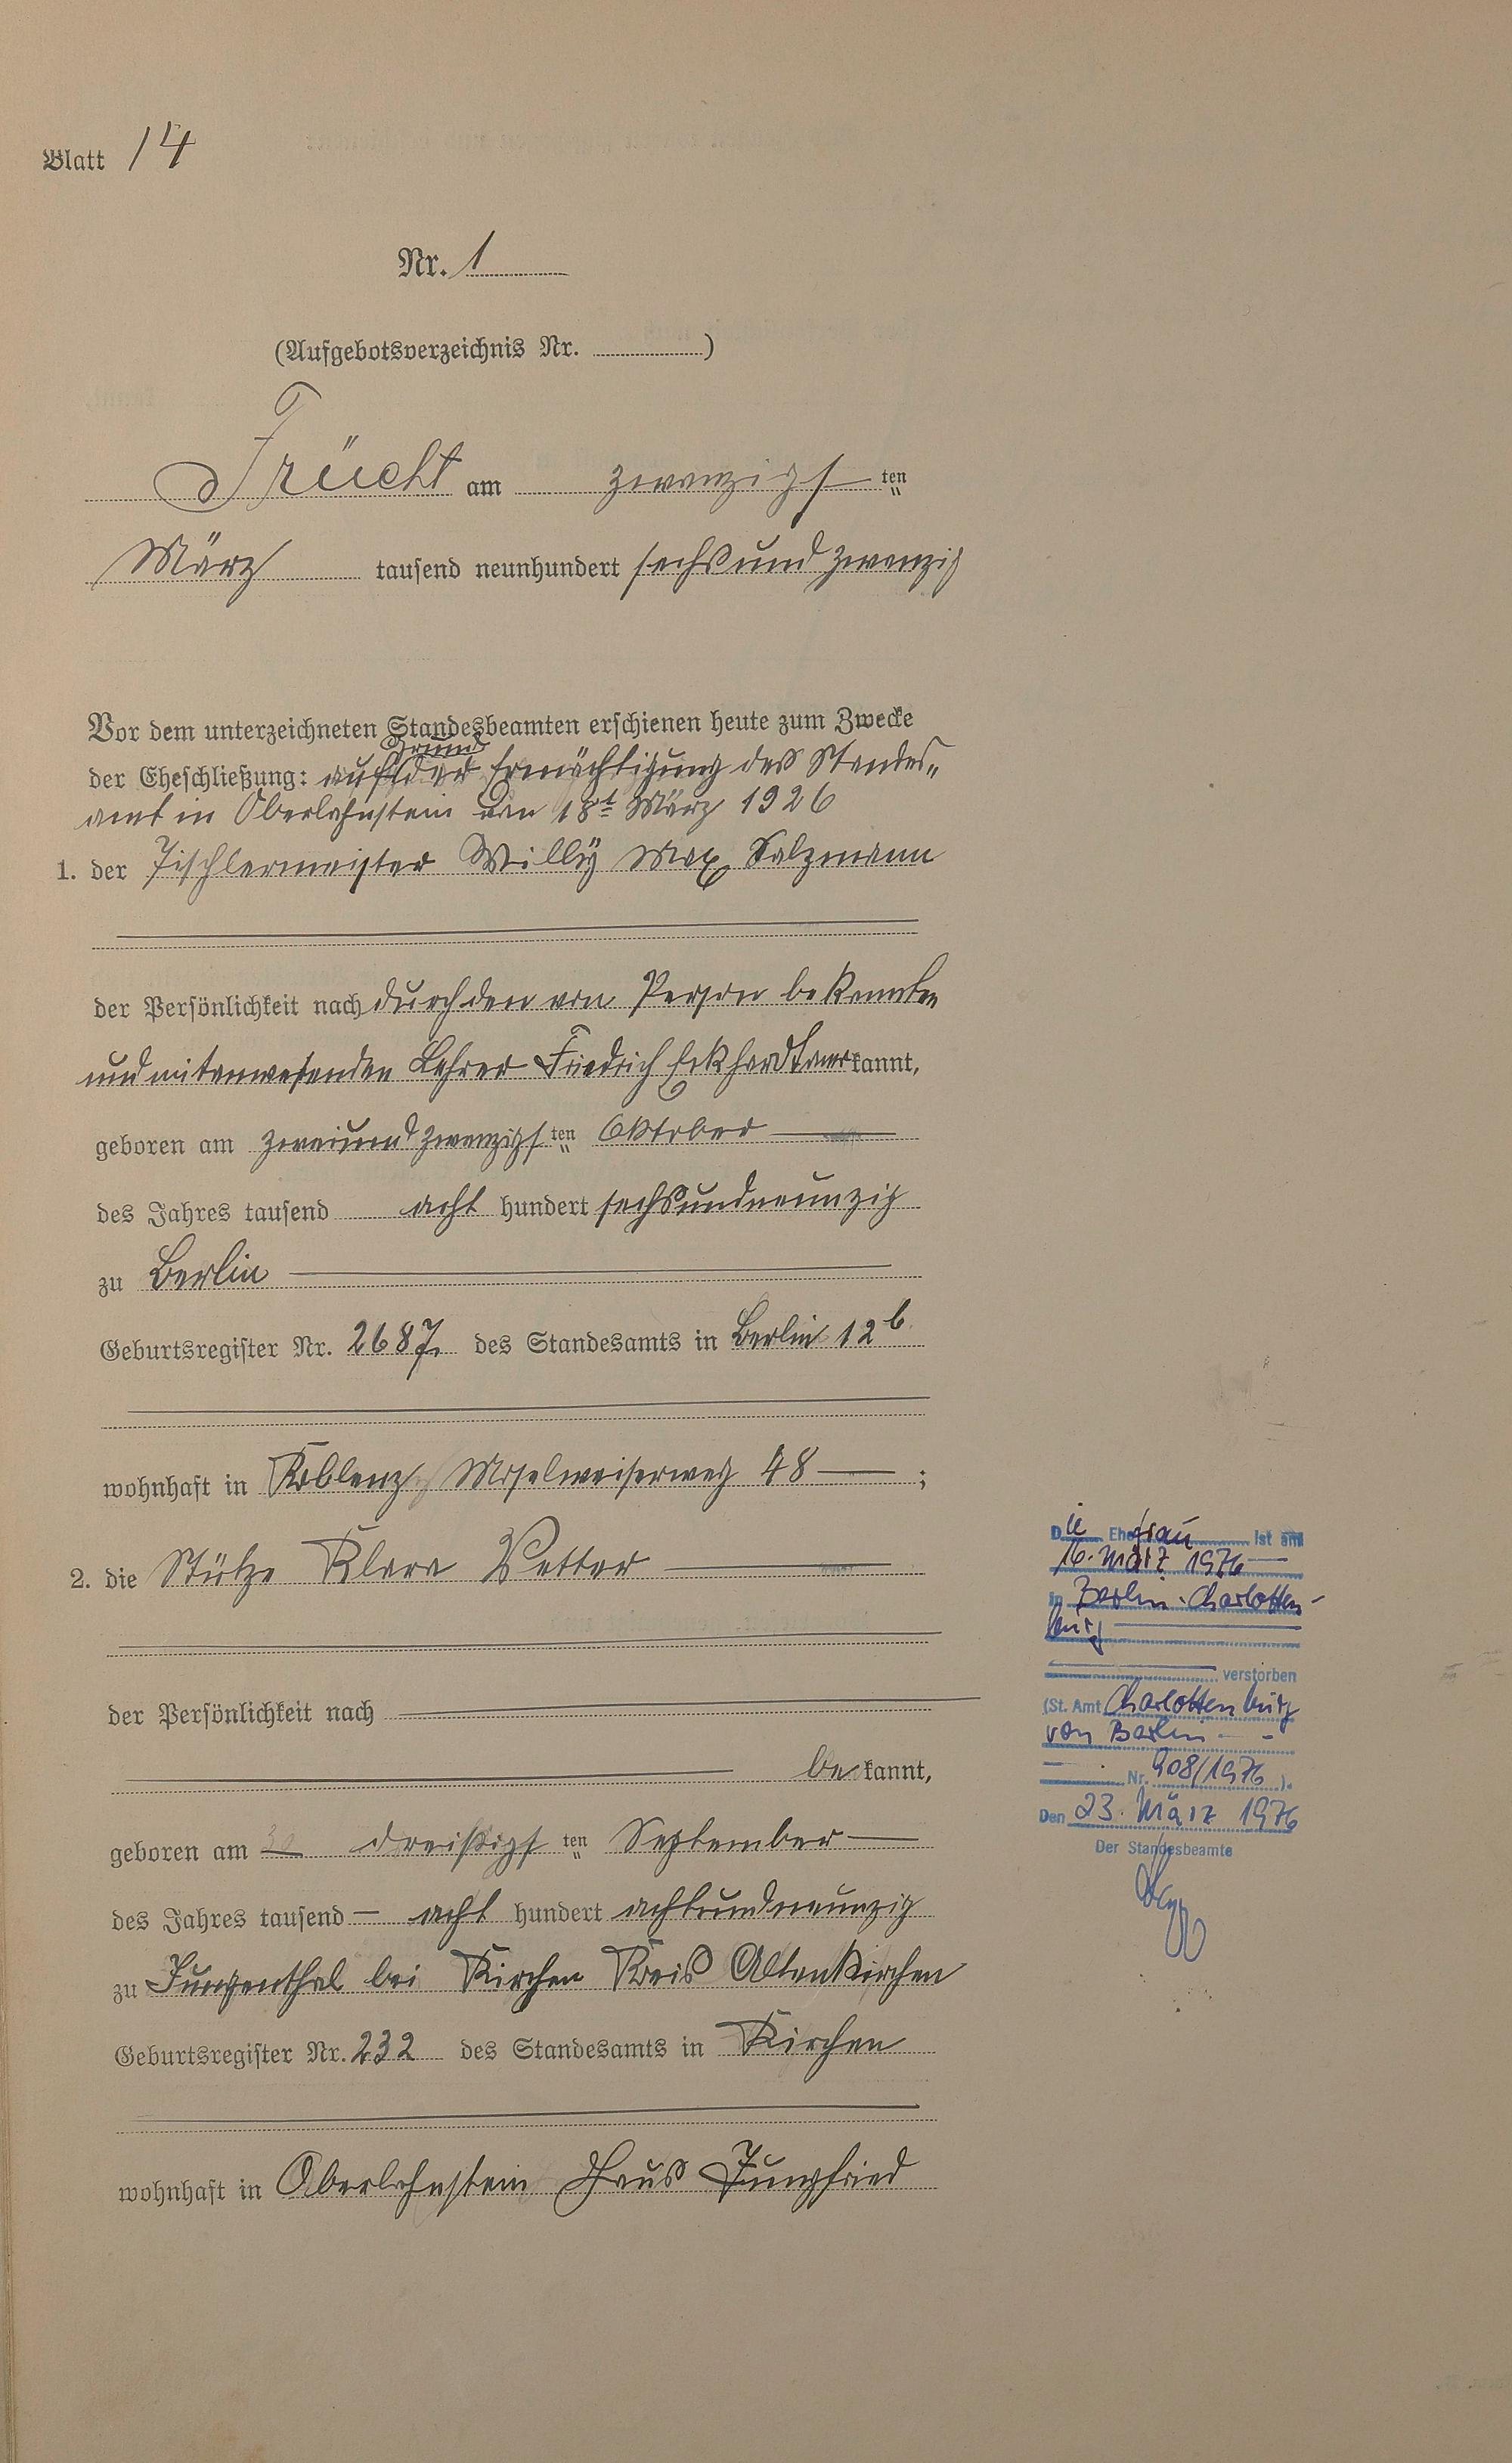 Blatt 14
Nr. 1
(Aufgebotsverzeichnis Nr. )
Frücht am zwanzigsten
März tausend neunhundert sechsundzwanzig
Vor dem unterzeichneten Standesbeamten erschienen heute zum Zwecke
der Eheschließung: auf Grund der Ermächtigung des Standes-
amt in Oberlahnstein vom 18t März 1926
1. der Tischlermeister Willÿ Max Salzmann
der Persönlichkeit nach durch den von Person bekannten
und mitanwesenden Lehrer Friedrich Eckhardt anerkannt,
geboren am zweiundzwanzigsten Oktober
des Jahres tausend acht hundert sechsundneunzig
zu Berlin
Geburtsregister Nr. 2687. des Standesamts in Berlin 12b
wohnhaft in Koblenz, Moselweiserweg 48 ;
2. die Stütze Klara Vetter
der Persönlichkeit nach
be kannt,
geboren am 30 dreißigsten September
des Jahres tausend acht hundert achtundneunzig
zu Jungenthal bei Kirchen Kreis Altenkirchen
Geburtsregister Nr. 232 des Standesamts in Kirchen
wohnhaft in Oberlahnstein Haus Jungfried
Die Ehefrau ist am
16. März 1976
in Berlin-Charlotten-
burg
verstorben
(St. Amt Charlottenburg
von Berlin
Nr. 908/1976 ).
Den 23. März 1976
Der Standesbeamte